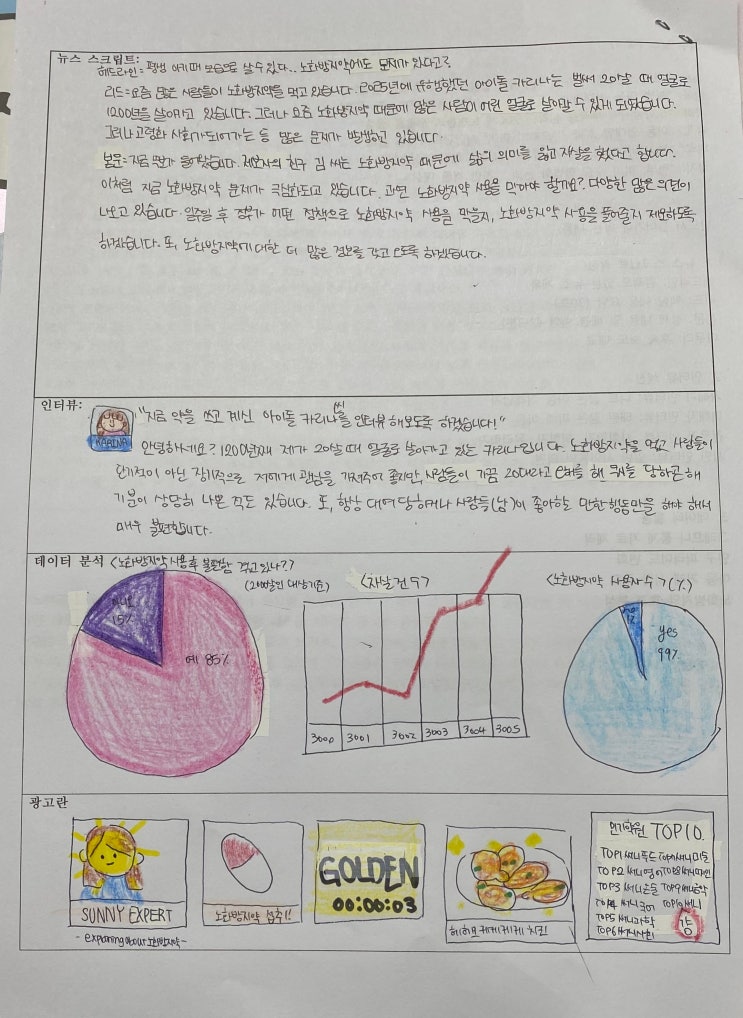 뉴스 스크립트:
헤드라인= 평생 아기때 모습으로 살 수 있다.. 노화방지약에도 문제가 있다고?
리드= 요즘 많은 사람들이 노화방지약을 먹고 있습니다. 2025년에 유행했던 아이돌 카리나는 벌써 20살 때 얼굴로
1200년을 살아가고 있습니다. 그러나 요즘 노화방지약 때문에 많은 사람이 어린 얼굴로 살아갈 수 있게 되었습니다.
그러나 고령화 사회가 되어가는 등 많은 문제가 발생하고 있습니다.
본문= 지금 막 들어왔습니다. 제보자의 친구 김 씨는 노화방지약 때문에 삶의 의미를 잃고 자살을 했다고 합니다.
이처럼 지금 노화방지약 문제가 극심화되고 있습니다. 과연 노화방지약 사용을 막아야 할까요? 다양한 많은 의견이
나오고 있습니다. 일주일 후 정부가 어떤 정책으로 노화방지약 사용을 막을지, 노화방지약 사용을 풀어줄지 제보하도록
하겠습니다. 또, 노화방지약에 대한 더 많은 정보를 갖고 오도록 하겠습니다.
인터뷰:
KARINA
"지금 약을 쓰고 계신 아이돌 카리나씨를 인터뷰 해보도록 하겠습니다!"
안녕하세요? 1200년째 제가 20살 때 얼굴로 살아가고 있는 카리나입니다. 노화방지약을 먹고 사람들이
단기적이 아닌 장기적으로 저에게 관심을 가져주어 좋지만, 사람들이 가끔 20대라고 해 당하곤 해
기분이 상당히 나쁜 적도 있습니다. 또, 항상 당하거나 사람들(남)이 좋아할 만한 행동만을 해야 해서
매우 불편합니다.
데이터 분석 <노화방지약 사용 후 불편함 겪고 있나?>
(2100명인 대상 기준)
<자살 건 수>
<노화방지약 사용자 수>(%)
아니오
15%
예 85%
3000 3001 3002 3003 3004 3005
no
1%
yes
99%
광고란
SUNNY EXPERT
-explaining about 노화방지약-
노화방지약 섭취!!
GOLDEN
00:00:03
케케케케 치킨
인기학원 TOP10.
TOP1 써니폭드 TOP7 써니미술
TOP2 써니영어 TOP8
TOP3 써니논술 TOP9 써니음악
TOP4 써니국어 TOP10 써니
TOP5 써니과학
TOP6 써니사회
강